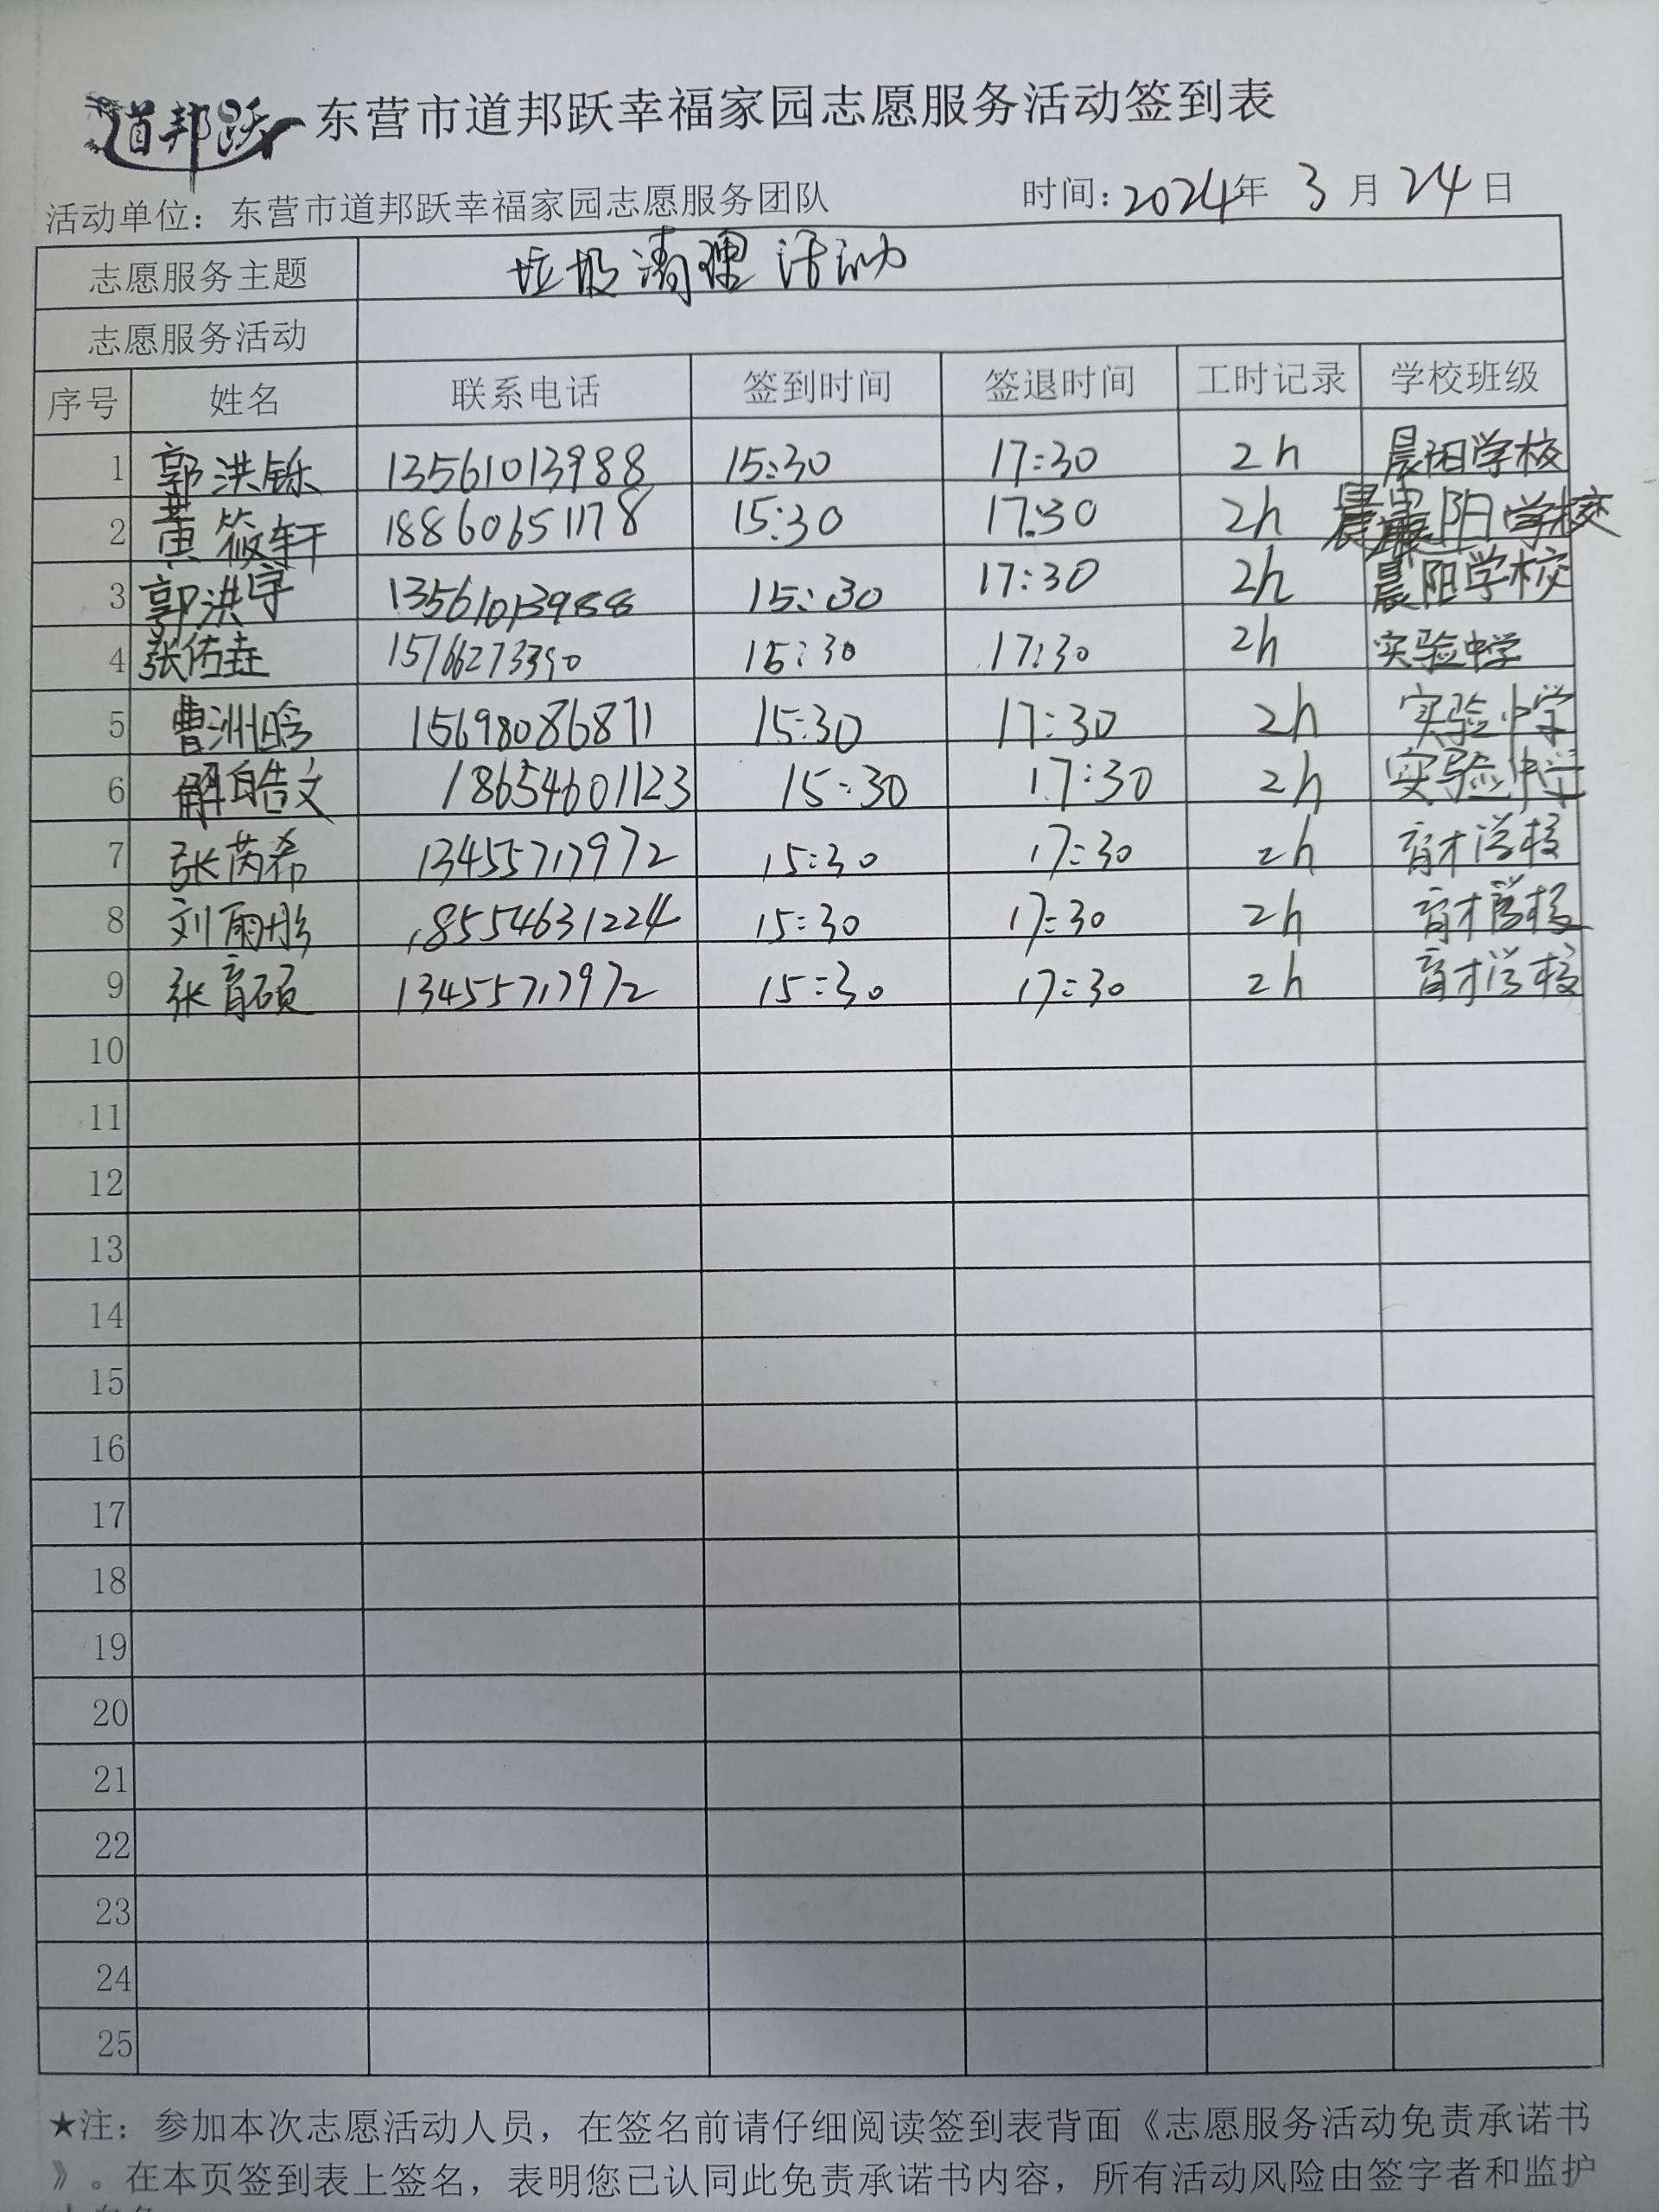 道邦跃 东营市道邦跃幸福家园志愿服务活动签到表
活动单位：东营市道邦跃幸福家园志愿服务团队 时间：2024年 3 月 24 日
志愿服务主题 垃圾清理活动
志愿服务活动
序号 姓名 联系电话 签到时间 签退时间 工时记录 学校班级
1 郭洪铄 13561013988 15:30 17:30 2h 晨阳学校
2 黄筱轩 18860651178 15:30 17:30 2h 晨阳学校
3 郭洪宇 13561013988 15:30 17:30 2h 晨阳学校
4 张佑垚 15166273390 15:30 17:30 2h 实验中学
5 曹洲晗 15698086871 15:30 17:30 2h 实验中学
6 解皓文 18654601123 15:30 17:30 2h 实验中学
7 张芮希 13455717972 15:30 17:30 2h 育才学校
8 刘雨彤 18554631224 15:30 17:30 2h 育才学校
9 张育硕 13455717972 15:30 17:30 2h 育才学校
10
11
12
13
14
15
16
17
18
19
20
21
22
23
24
25
★注：参加本次志愿活动人员，在签名前请仔细阅读签到表背面《志愿服务活动免责承诺书
》。在本页签到表上签名，表明您已认同此免责承诺书内容，所有活动风险由签字者和监护